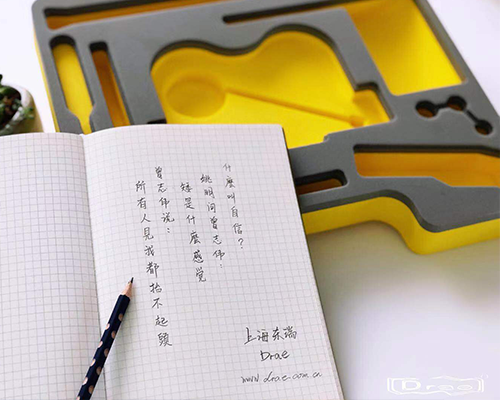 什麼叫自信?
姚明问曾志伟:
矮是什麼感覺
曾志伟说:
所有人見我都抬不起頭
上海东瑞
Drae
www.drae.com.cn
Drae